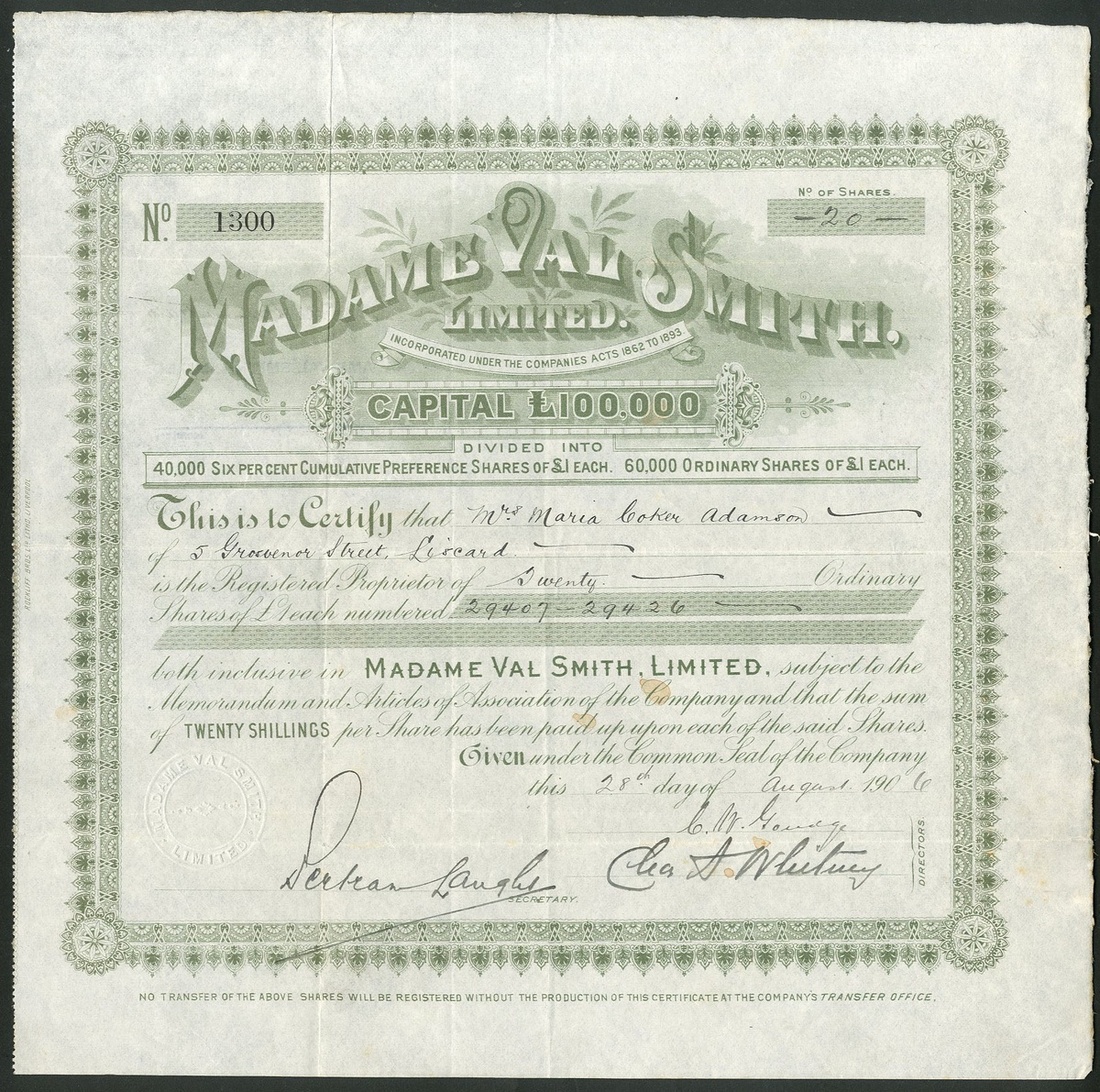 Nº 1300
Nº OF SHARES.
— 20 —
MADAME VAL SMITH.
LIMITED.
INCORPORATED UNDER THE COMPANIES ACTS 1862 TO 1893.
CAPITAL £100,000
DIVIDED INTO
40,000 SIX PER CENT CUMULATIVE PREFERENCE SHARES OF £1 EACH. 60,000 ORDINARY SHARES OF £1 EACH.
This is to Certify that Mrs Maria Coker Adamson
of 5 Grosvenor Street, Liscard.
is the Registered Proprietor of Twenty. Ordinary
Shares of £1 each numbered 29407 — 29426
both inclusive in MADAME VAL SMITH, LIMITED, subject to the
Memorandum and Articles of Association of the Company and that the sum
of TWENTY SHILLINGS per Share has been paid up upon each of the said Shares.
Given under the Common Seal of the Company
this 28th day of August. 1906
MADAME VAL SMITH LIMITED
C. W. Goudge
Chas S. Whitney
DIRECTORS.
Bertram
SECRETARY.
NO TRANSFER OF THE ABOVE SHARES WILL BE REGISTERED WITHOUT THE PRODUCTION OF THIS CERTIFICATE AT THE COMPANY'S TRANSFER OFFICE.